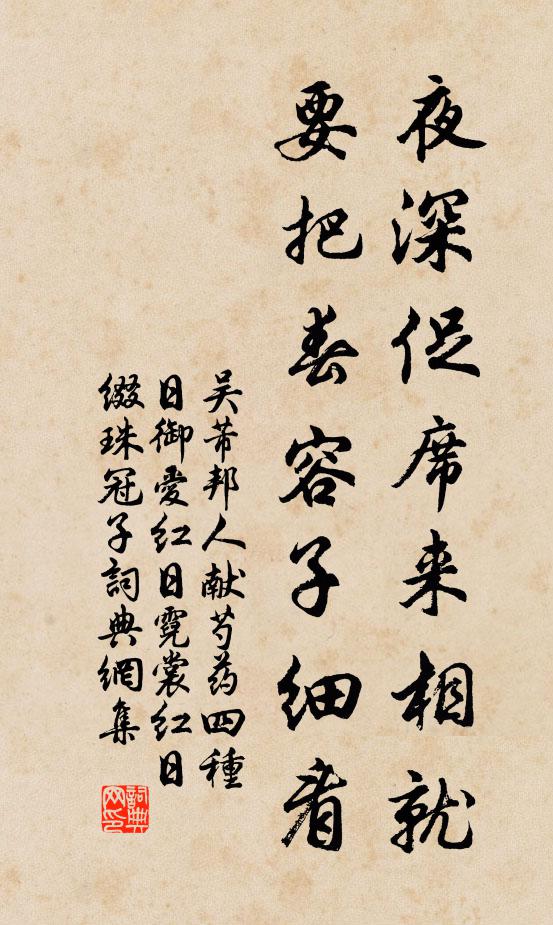 夜深促席来相就
要把春容子细看
吴芾邦人献芍药四種
日御愛红日霓裳红日
缀珠冠子詞典網集
詞典網印